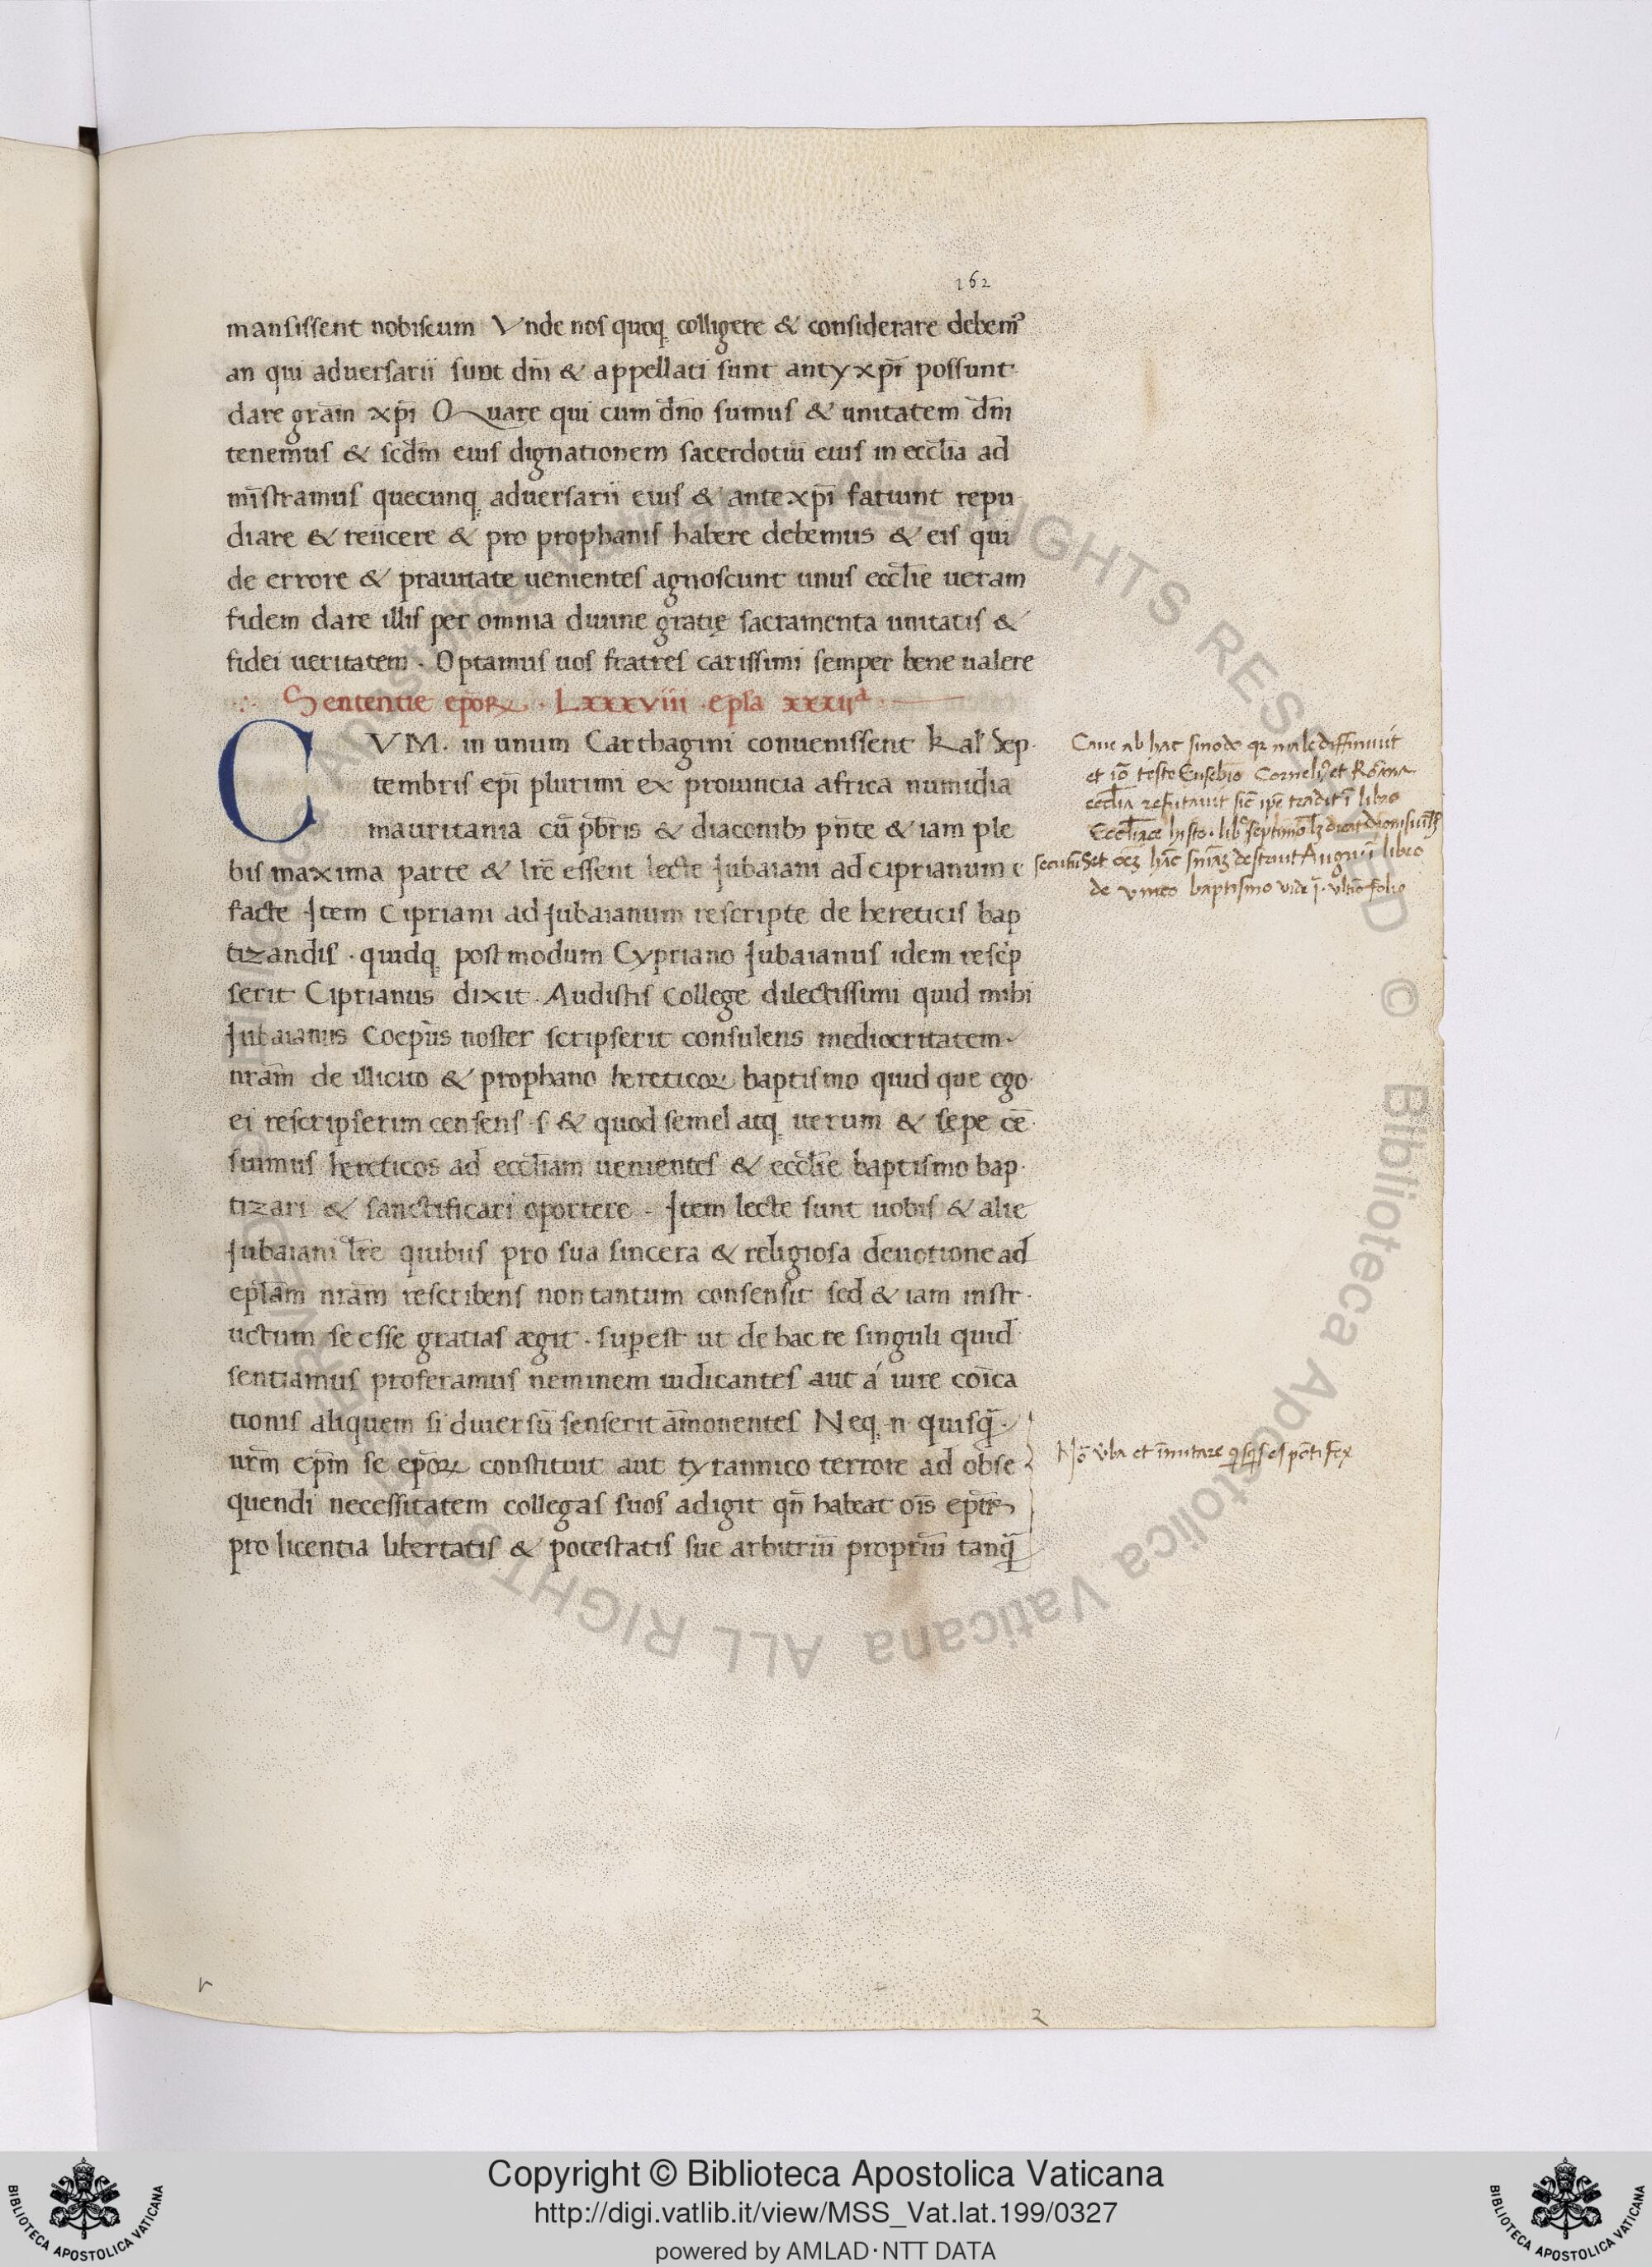 162
mansissent nobiscum Vnde nos quoq; colligere & considerare debem᾽
an qui aduersarii sunt dñi & appellati sunt antyxp̄i possunt
dare grām xp̄i Quare qui cum dño sumus & unitatem dñi
tenemus & scd̄m eius dignationem sacerdotiū eius in eccl̄ia ad
mīstramus quecunq; aduersarii eius & antexp̄i fatiunt repu
diare & reiicere & pro prophanis habere debemus & eis qui
de errore & prauitate uenientes agnoscunt unius eccl̄ie ueram
fidem dare illis per omnia diuine gratię sacramenta unitatis &
fidei ueritatem . Optamus uos fratres carissimi semper bene ualere
Sententie epōꝝ . Lxxxviii . ep̄la xxxiiᵃ
CVM . in unum Carthagini conuenissent kal̄ Sep
tembris ep̄i plurimi ex prouincia africa numidia
mauritania cū p̄bris & diaconibꝫ pn̄te & iam ple
bis maxima parte & lr̄e essent lecte Jubaiani ad ciprianum
facte Jtem Cipriani ad Jubaianum rescripte de hereticis bap
tizandis . quidq; postmodum Cypriano Jubaianus idem rescp̄
serit Ciprianus dixit . Audistis college dilectissimi quid mihi
Jubaianus Coep̄us noster scripserit consulens mediocritatem
nrām de illicito & prophano hereticoꝝ baptismo quid que ego
ei rescripserim censens . s & quod semel atq; iterum & sepe cē
suimus hereticos ad eccl̄iam uenientes & eccl̄ie baptismo bap
tizari & sanctificari oportere . Jtem lecte sunt uobis & alie
Jubaiani lr̄e quibus pro sua sincera & religiosa deuotione ad
ep̄lam nrām rescribens non tantum consensit sed & iam instr
uctum se esse gratias ægit . supest ut de hac re singuli quid
sentiamus proferamus neminem iudicantes aut á iure cōica
tionis aliquem si diuersū senserit āmonentes Neq; n quisq̄
urm̄ ep̄m se ep̄oꝝ constituit aut tyrannico terrore ad obse
quendi necessitatem collegas suos adigit qn̄ habeat oīs
pro licentia libertatis & potestatis sue arbitriū propriū tanq̄
Caue ab hac sinodo qꝛ male diffiniuit
et iō teste Eusebio Corneli᾽ et Romā
eccl̄ia refutauit sic ip̄e tradit ī libro
septimo
Augu᾽ ī libro
de vnico baptismo vide ī . vltīo folio
Nō v̄ba et īmitare es pōtifex
2
Copyright © Biblioteca Apostolica Vaticana
http://digi.vatlib.it/view/MSS_Vat.lat.199/0327
powered by AMLAD·NTT DATA
BIBLIOTECA APOSTOLICA VATICANA
BIBLIOTECA APOSTOLICA VATICANA